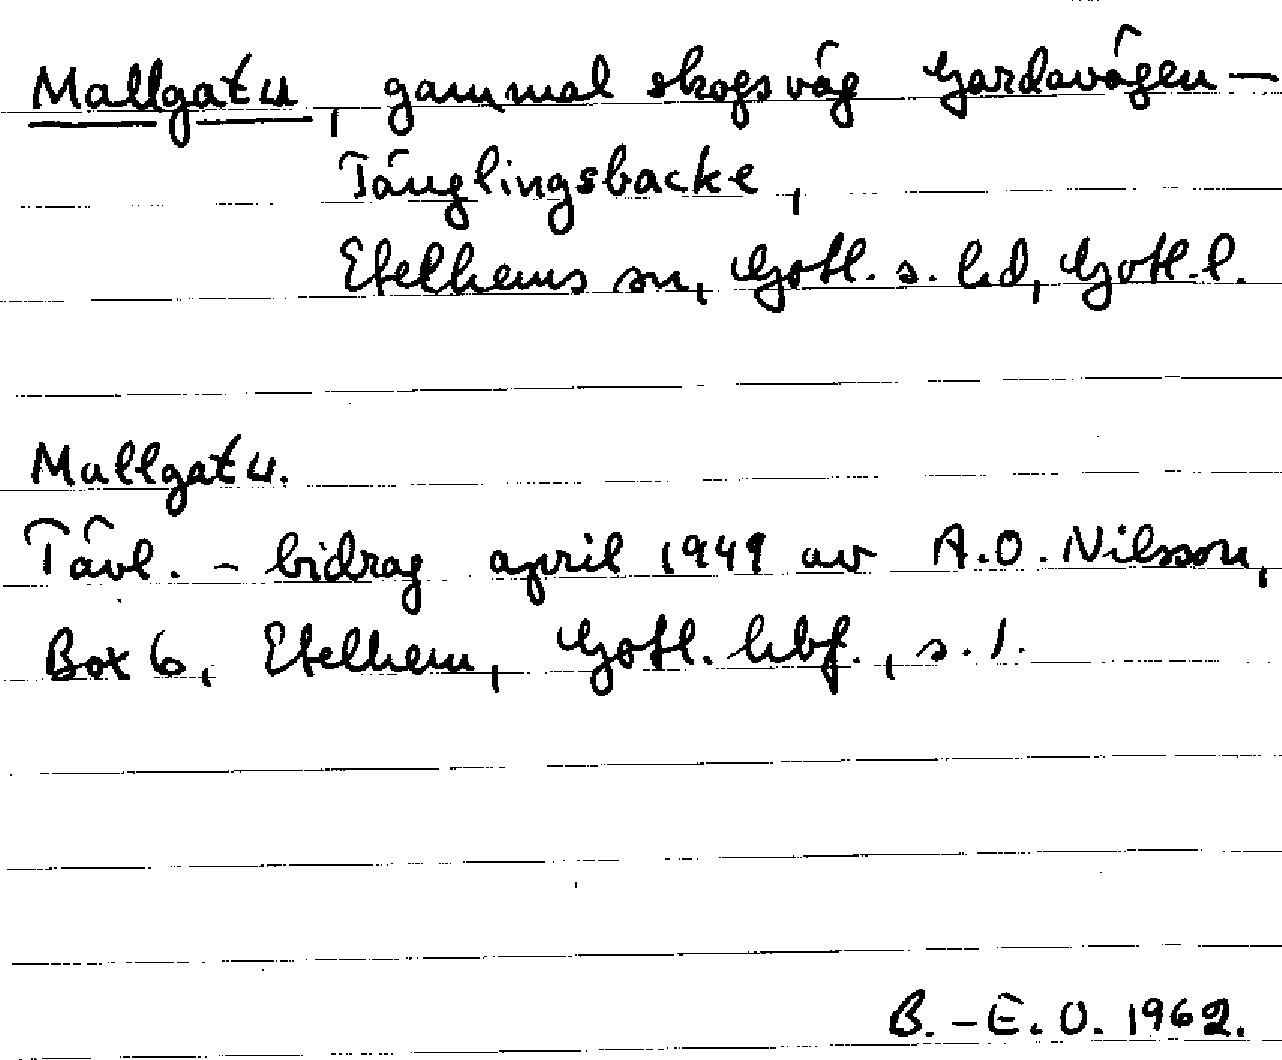 Mallgatu, gammal skogsväg Gardavägen –
Tänglingsbacke,
Etelhems sn, Gotl. s. hd, Gotl. l.
Mallgatu.
Tävl. - bidrag april 1949 av A.O. Nilsson,
Box 6, Etelhem, Gotl. hbf., s. 1.
B.-E.O. 1962.